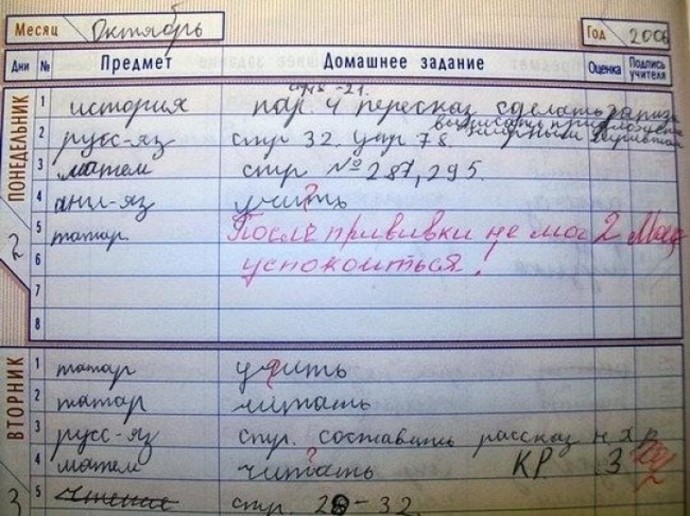 Месяц Октябрь Год 2008
Дни № Предмет Домашнее задание Оценка Подпись учителя
ПОНЕДЕЛЬНИК
2
стр 18-21.
1 история пар. 4 пересказ сделать
выписать предложения
2 русс-яз стр 32. упр 78.
3 матем стр № 287, 295.
4 анг-яз учить ?
5 татар После прививки не мог 2
6 успокоиться!
7
8
ВТОРНИК
3
1 татар учить
2 татар читать
3 русс-яз стр. составить рассказ н.х.р
4 матем читать ? КР. 3
5 чтение стр. 28-32.